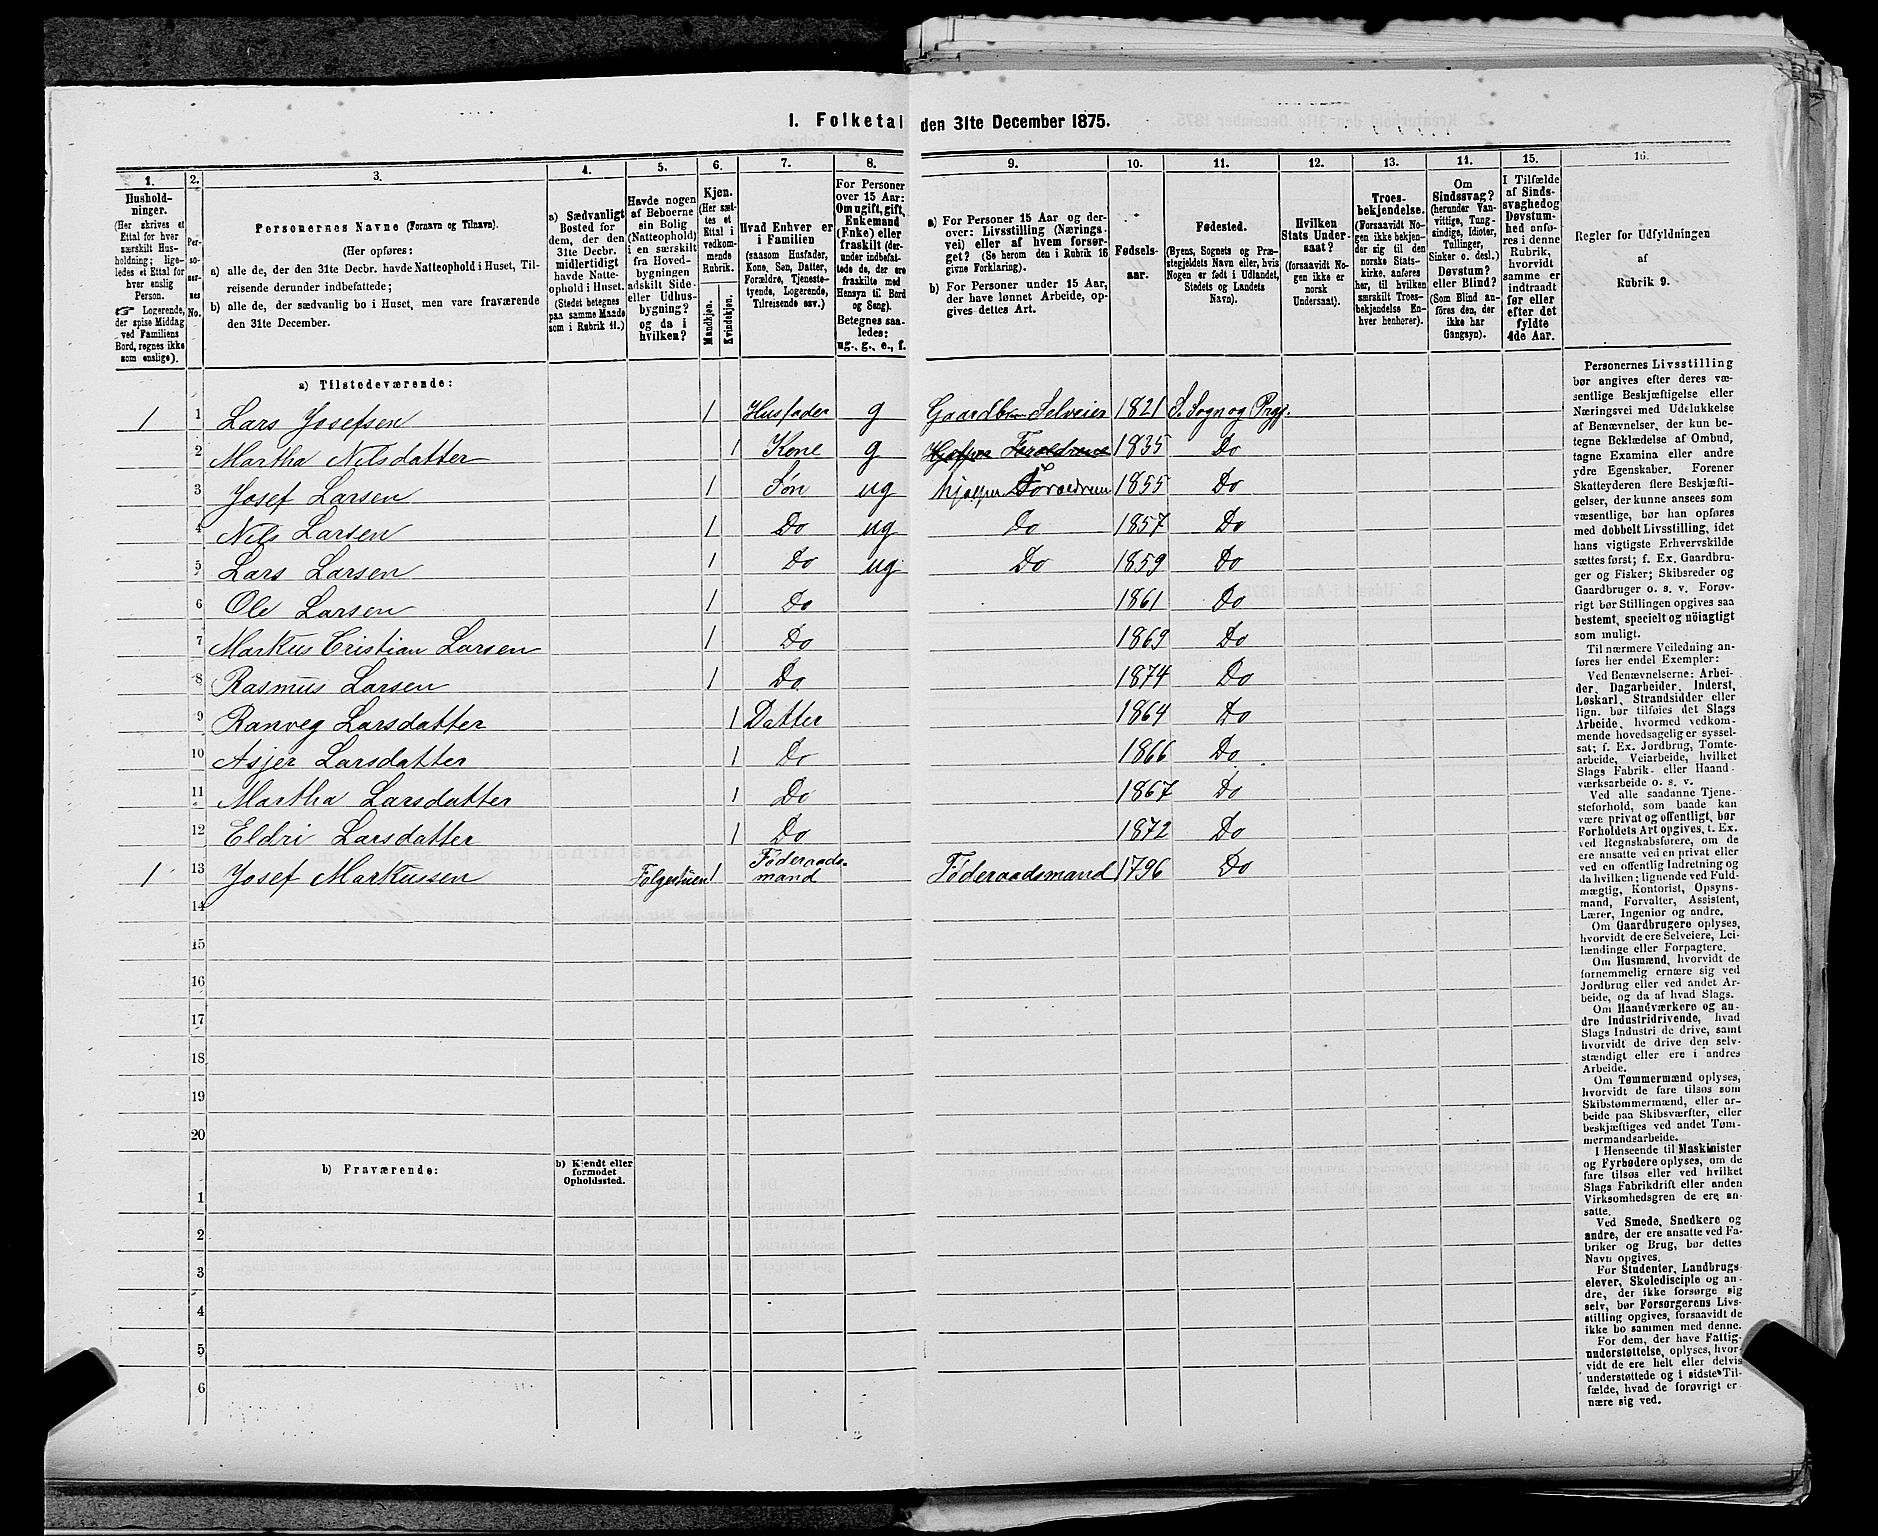 I. Folketal den 31te December 1875.
1. 2. 3. 4. 5. 6. 7. 8. 9. 10. 11. 12. 13. 14. 15. 16.
Hushold-
ninger.
(Her skrives et
Ettal for hver
særskilt Hus-
holdning; lige-
ledes et Ettal for
hver enslig
Person.
☞ Logerende,
der spise Middag
ved Familiens
Bord, regnes ikke
som enslige).
Per-
so-
ner-
nes
No.
Personernes Navne (Fornavn og Tilnavn).
(Her opføres:
a) alle de, der den 31te Decbr. havde Natteophold i Huset, Til-
reisende derunder indbefattede;
b) alle de, der sædvanlig bo i Huset, men vare fraværende
den 31te December.
a) Sædvanligt
Bosted for
dem, der den
31te Decbr.
midlertidigt
havde Natte-
ophold i Huset.
(Stedet betegnes
paa samme Maade
som i Rubrik 11.)
Havde nogen
af Beboerne
sin Bolig
(Natteophold)
i en særskilt
fra Hoved-
bygningen
adskilt Side-
eller Udhus-
bygning?
og da i
hvilken?
Kjøn.
(Her sæt-
tes et
Ettal i
vedkom-
mende
Rubrik.
Mandkjøn.
Kvindekjøn.
Hvad Enhver er
i Familien
(saasom Husfader,
Kone, Søn, Datter,
Forældre, Tjeneste-
tyende, Logerende,
Tilreisende osv.)
For Personer
over 15 Aar:
Om ugift, gift,
Enkemand
(Enke) eller
fraskilt (der-
under indbefat-
tede de, der ere
fraskilte med
Hensyn til Bord
og Seng).
Betegnes saa-
ledes:
ug., g., e., f.
a) For Personer 15 Aar og der-
over: Livsstilling (Nærings-
vei) eller af hvem forsør-
get? (Se herom den i Rubrik 16
givne Forklaring).
b) For Personer under 15 Aar,
der have lønnet Arbeide, op-
gives dettes Art.
Fødsels-
aar.
Fødested.
(Byens, Sognets og Præ-
stegjeldets Navn eller, hvis
Nogen er født i Udlandet,
Stedets og Landets
Navn).
Hvilken
Stats Under-
saat?
(forsaavidt No-
gen ikke er
norsk
Undersaat).
Troes-
bekjendelse.
(Forsaavidt No-
gen ikke bekjen-
der sig til den
norske Stats-
kirke, anføres
her, til hvilken
særskilt Troes-
bekjendelse En-
hver henhører).
Om
Sindssvag?
(herunder Van-
vittige, Tung-
sindige, Idioter,
Tullinger,
Sinker o. desl.)
Døvstum?
eller Blind?
(Som Blind an-
føres den, der
ikke har
Gangsyn).
I Tilfælde
af Sinds-
svaghed og
Døvstum-
hed anfø-
res i denne
Rubrik,
hvorvidt
samme er
indtraadt
før eller
efter det
fyldte
4de Aar.
Regler for Udfyldningen
af
Rubrik 9.
a) Tilstedeværende:
1 1 Lars Josefsen 1 Husfader g Gaardbr. Selveier 1821 S. Sogn og Prgj.
2 Martha Nilsdatter 1 Kone g Hjælper Forældrene 1835 Do
3 Josef Larsen 1 Søn ug hjælper Forældrene 1855 Do
4 Nils Larsen 1 Do ug Do 1857 Do
5 Lars Larsen 1 Do ug Do 1859 Do
6 Ole Larsen 1 Do 1861 Do
7 Markus Cristian Larsen 1 Do 1869 Do
8 Rasmus Larsen 1 Do 1874 Do
9 Ranveg Larsdatter 1 Datter 1864 Do
10 Asjer Larsdatter 1 Do 1866 Do
11 Martha Larsdatter 1 Do 1867 Do
12 Eldri Larsdatter 1 Do 1872 Do
1 13 Josef Markussen 1 Føderaads-
mand Føderaadsmand 1796 Do
14
15
16
17
18
19
20
b) Fraværende:
b) Kjendt eller
formodet
Opholdssted.
1
2
3
4
5
6
Personernes Livsstilling
bør angives efter deres væ-
sentlige Beskjæftigelse eller
Næringsvei med Udelukkelse
af Benævnelser, der kun be-
tegne Beklædelse af Ombud,
tagne Examina eller andre
ydre Egenskaber. Forener
Skatteyderen flere Beskjæfti-
gelser, der kunne ansees som
væsentlige, bør han opføres
med dobbelt Livsstilling, idet
hans vigtigste Erhvervskilde
sættes først; f. Ex. Gaardbru-
ger og Fisker; Skibsreder og
Gaardbruger o. s. v. Forøv-
rigt bør Stillingen opgives saa
bestemt, specielt og nöiagtigt
som muligt.
Til nærmere Veiledning an-
føres her endel Exempler:
Ved Benævnelserne: Arbei-
der, Dagarbeider, Inderst,
Løskarl, Strandsidder eller
lign. bør tilføies det Slags
Arbeide, hvormed vedkom-
mende hovedsagelig er syssel-
sat; f. Ex. Jordbrug, Tomte-
arbeide, Veiarbeide, hvilket
Slags Fabrik- eller Haand-
værksarbeide o. s. v.
Ved alle saadanne Tjene-
steforhold, som baade kan
være privat og offentligt, bør
Forholdets Art opgives, t. Ex.
ved Regnskabsførere, om de
ere ansatte ved en privat eller
ved en offentlig Indretning og
da hvilken; lignende ved Fuld-
mægtig, Kontorist, Opsyns-
mand, Forvalter, Assistent,
Lærer, Ingeniør og andre.
Om Gaardbrugere oplyses,
hvorvidt de ere Selveiere, Lei-
lændinge eller Forpagtere.
Om Husmænd, hvorvidt de
fornemmelig ernære sig ved
Jordbrug eller ved andet Ar-
beide, og da af hvad Slags.
Om Haandværkere og an-
dre Industridrivende, hvad
Slags Industri de drive, samt
hvorvidt de drive den selv-
stændigt eller ere i andres
Arbeide.
Om Tømmermænd oplyses,
hvorvidt de fare tilsøs som
Skibstømmermænd, eller ar-
beide paa Skibsværfter, eller
beskjæftiges ved andet Tøm-
mermandsarbeide.
I Henseende til Maskinister
og Fyrbødere oplyses, om de
fare tilsøs eller ved hvilket
Slags Fabrikdrift eller anden
Virksomhedsgren de ere an-
satte.
Ved Smede, Snedkere og
andre, der ere ansatte ved Fa-
briker og Brug, bør dettes
Navn opgives.
For Studenter, Landbrugs-
elever, Skoledisciple og an-
dre, der ikke forsørge sig
selv, bør Forsørgerens Livs-
stilling opgives, forsaavidt de
ikke bo sammen med denne.
For dem, der have Fattig-
understøttelse, oplyses, hvor-
vidt de ere helt eller delvis
understøttede og i sidste Til-
fælde, hvad de forøvrigt er-
nære sig ved.